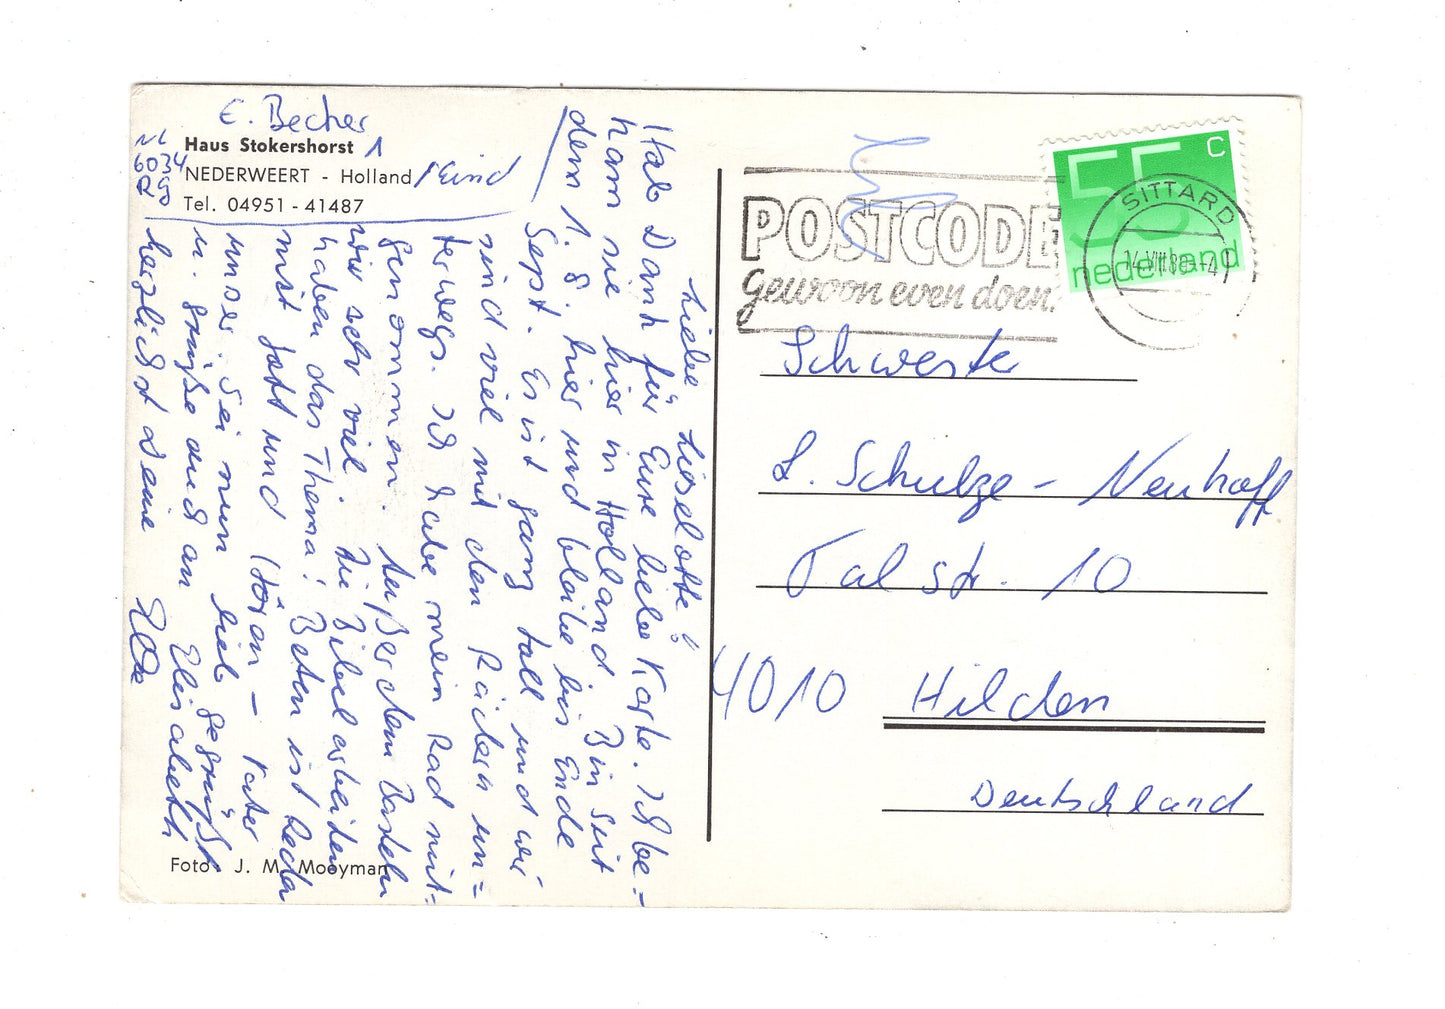 E. Becher
Haus Stokershorst 1
NL
6034
RG
NEDERWEERT - Holland / Eind
Tel. 04951 - 41487
Liebe Liselotte!
Hab Dank für Eure liebe Karte. Ich be-
kam sie hier in Holland. Bin seit
dem 1. 8. hier und bleibe bis Ende
Sept. Es ist ganz toll und wir
sind viel mit den Rädern un=
terwegs. Ich habe mein Rad mit-
genommen. Außer dem Basteln
wir sehr viel. Die Bibelarbeiten
haben das Thema: Beten ist Reden
mit Gott und Hören - Vater
unser. Sei nun lieb gegrüßt
u. grüße auch an Elisabeth
herzlichst Deine
POSTCODE
Gewoon even doen.
55 C
nederland
SITTARD
Schwester
L. Schulze - Neuhoff
Talstr. 10
4010 Hilden
Deutschland
Foto: J. M. Mooyman